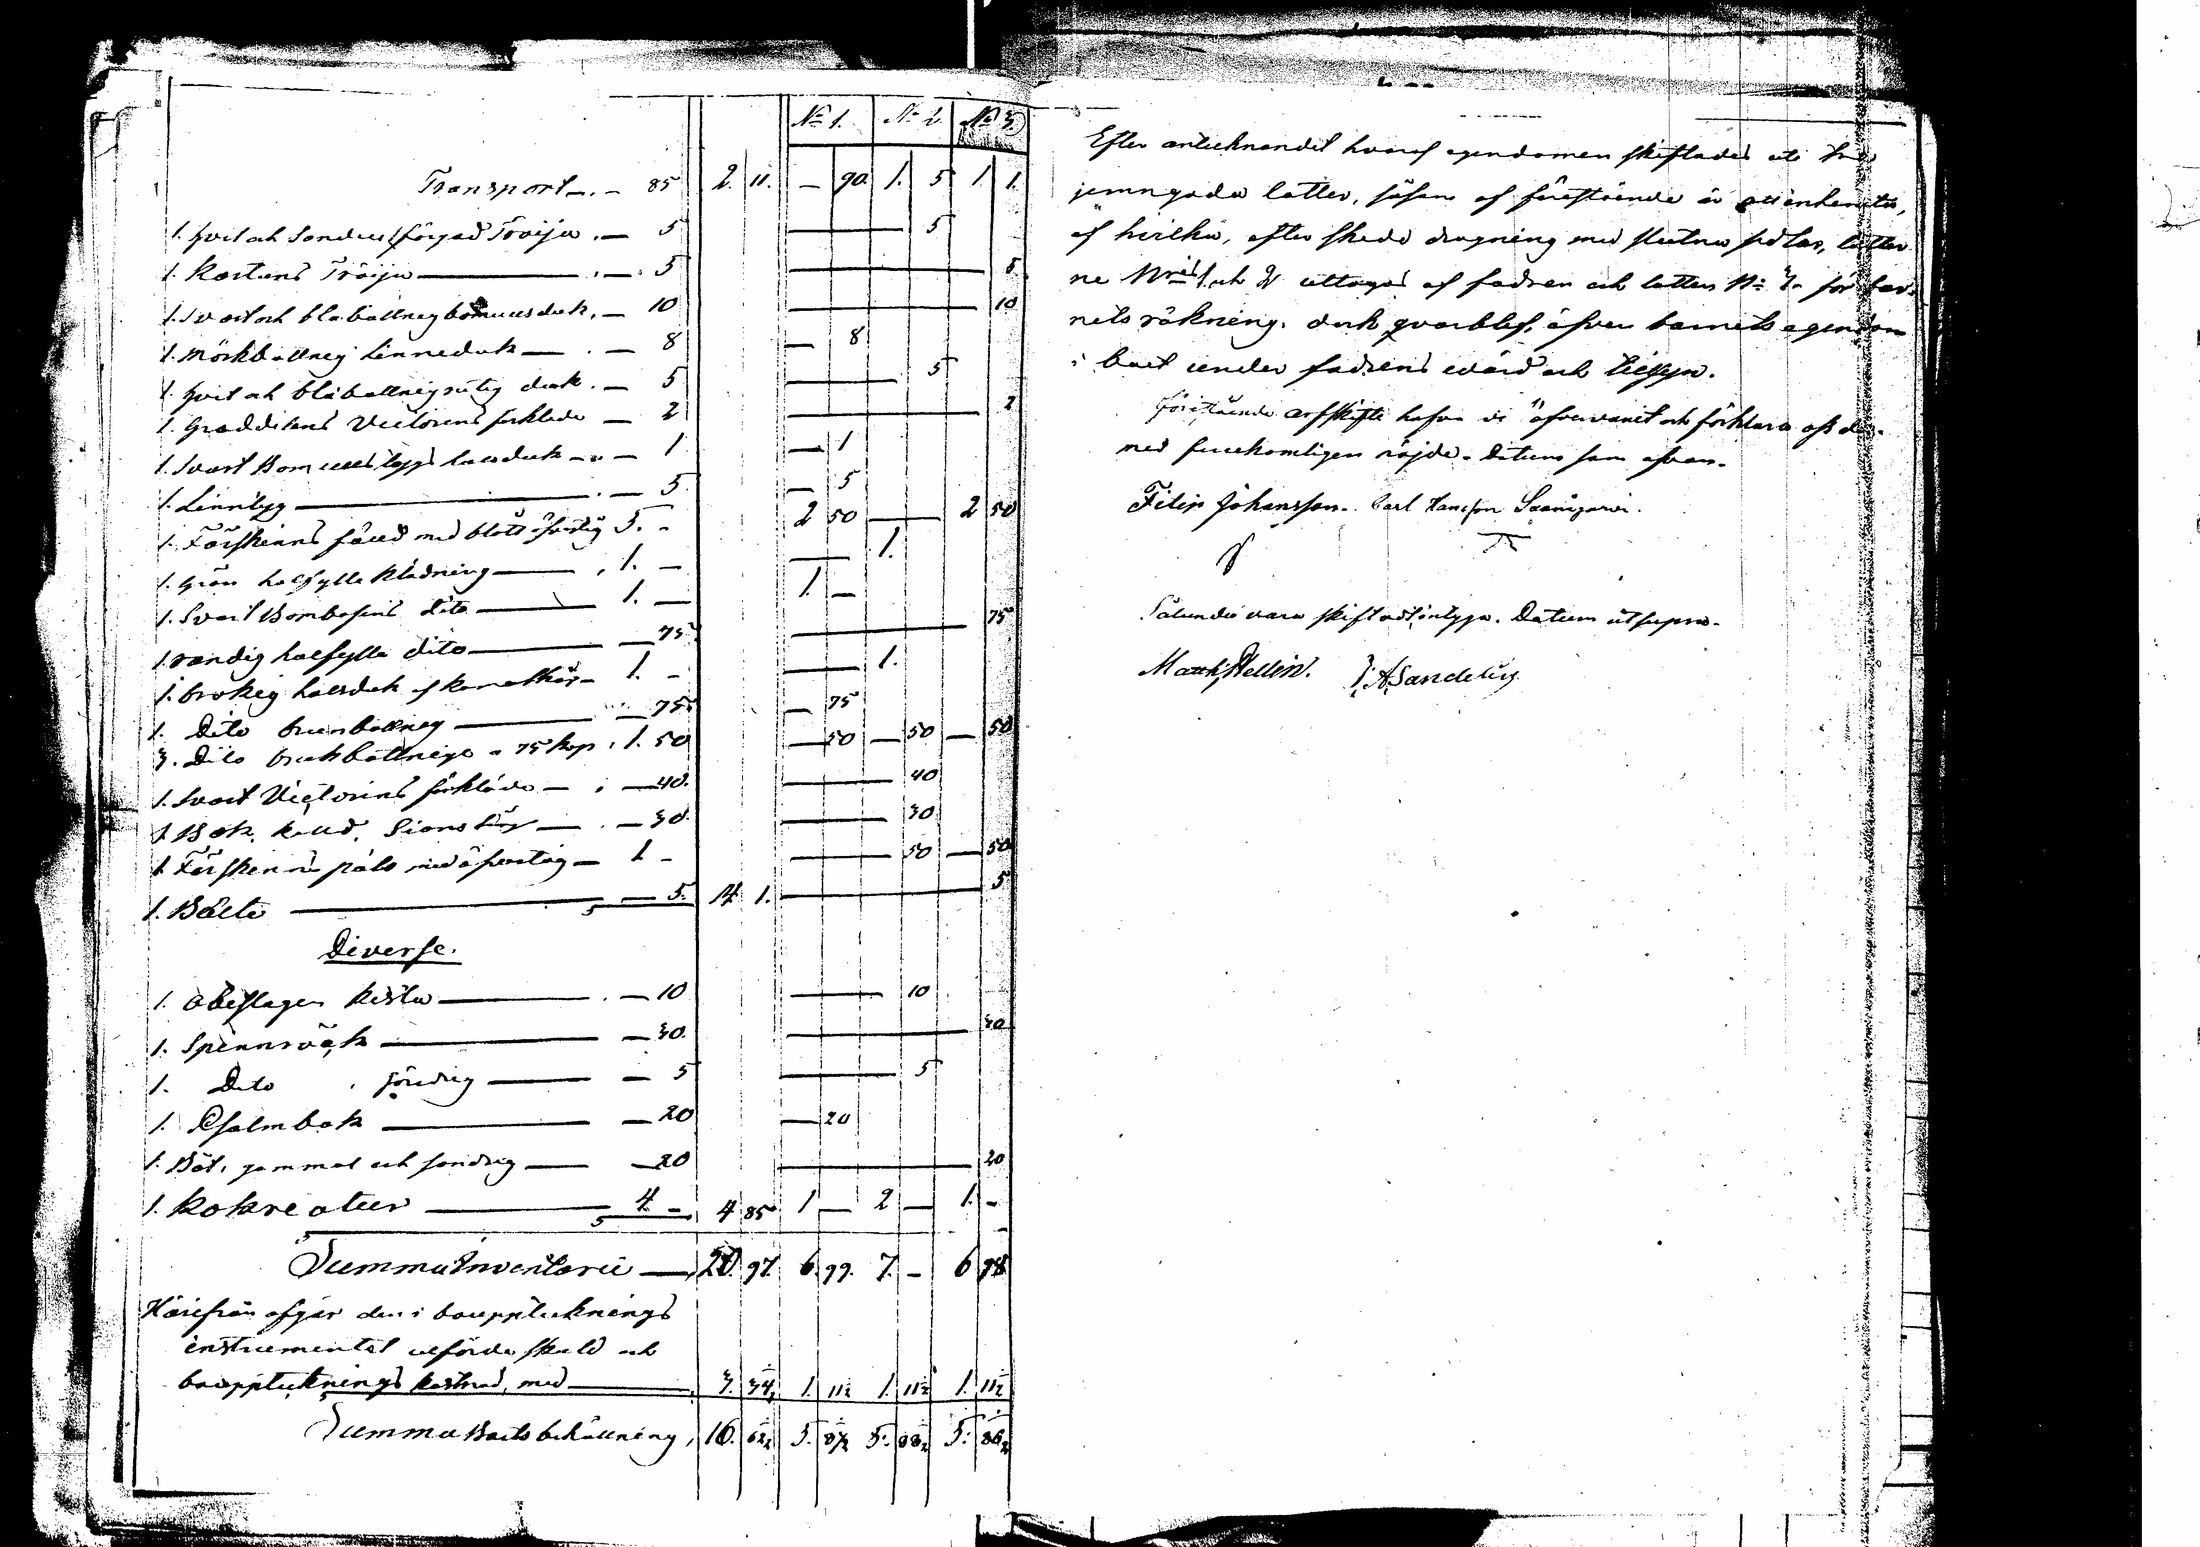 No 1. No 2. No 3.
Transport 85 2. 11. — 90. 1. 5 1. 1.
1. hvit och föryad Tröija — 5 — 5
1. Kartuns Tröija — 5 — 5
1. Svart och blåbottneg bomulls duk — 10 — 10
1. Mörkbottneg Linneduk — 8 — 8
1. hvit och blåbottneg rutig duk — 5 — 5
1. förkläde — 2 — 2
1. Svart Bomullstygs halsduk — 1 — 1
1. Linntyg — 5 — 5
1. Fårskinns fäll med blått 5. - 2 50 — 2 50
1. Grön halfylle Klädning 1. — — 1.
1. Svart Bombasins dito 1. — 1. —
1. randig halfylle dito — 75 — 75
1. brokig halsduk af kamelhår 1. - — 1.
1. Dito brunbottneg — 75 — 75
3. Dito bottnige a 75 kop. 1. 50 — 50 — 50 — 50
1. Svart förkläde — 40. — 40
1. Bok, kallad, Sions — 30. — 30
1. Fårskinns päls med 1 - — 50 — 50
1. Bälte — 5. 14 1. — 5
Diverse.
1. obeslagen kista — 10 — 10
1. Spinnråck — 30. — 30
1. Dito, söndrig — 5 — 5
1. Psalmbok — 20 — 20
1. Båt, gammal och söndrig — 20 — 20
1. Kokreatur 4 - 4 85 1 — 2 — 1. -
Summa Inventarii 20. 97. 6. 99. 7. - 6 98
Härifrån afgår den i bouppteknings
instrumentet upförda skuld och
bouppteknings kostnad, med 3. 34½ 1. 11½ 1. 11½ 1. 11½
Summa Boets behållning, 16. 62½ 5. 87½ 5. 88½ 5. 86½
Efter antecknandet hvaraf egendomen skiftades uti tre
jemngoda lotter, såsom af förestående är
af hvilka, efter skedd dragning med slutna sedlar, lotter
ne Nris 1. och 2 uttogos af fadren och lotten No 3. för bar-
nets räkning, dock qvarblef, äfven barnets egendom
i boet under fadrens vård och tillsyn.
Förestående arfskifte hafva vi öfvervarit och förklara oss der-
med fullkomligen nöjde. Datum som ofvan.
Filip Johansson. Carl Hansson
Sålunda vara skiftadt, intyga. Datum utsupra.
Matth. Hellin. J. A. Sandelin